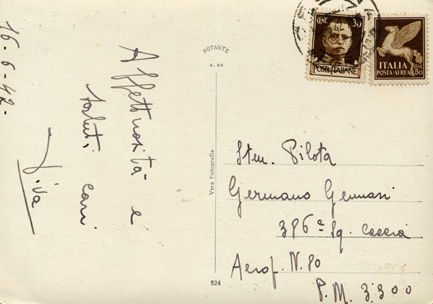 16-6-42-
Affettuosità e
saluti cari
ROTANTE
Vera Fotografia
524
CENT. 30
POSTE ITALIANE
ITALIA
POSTA AEREA
50
Sten. Pilota
Germano Gennari
386ª Sq. Caccia
Aerop. N. 80
P. M. 3300